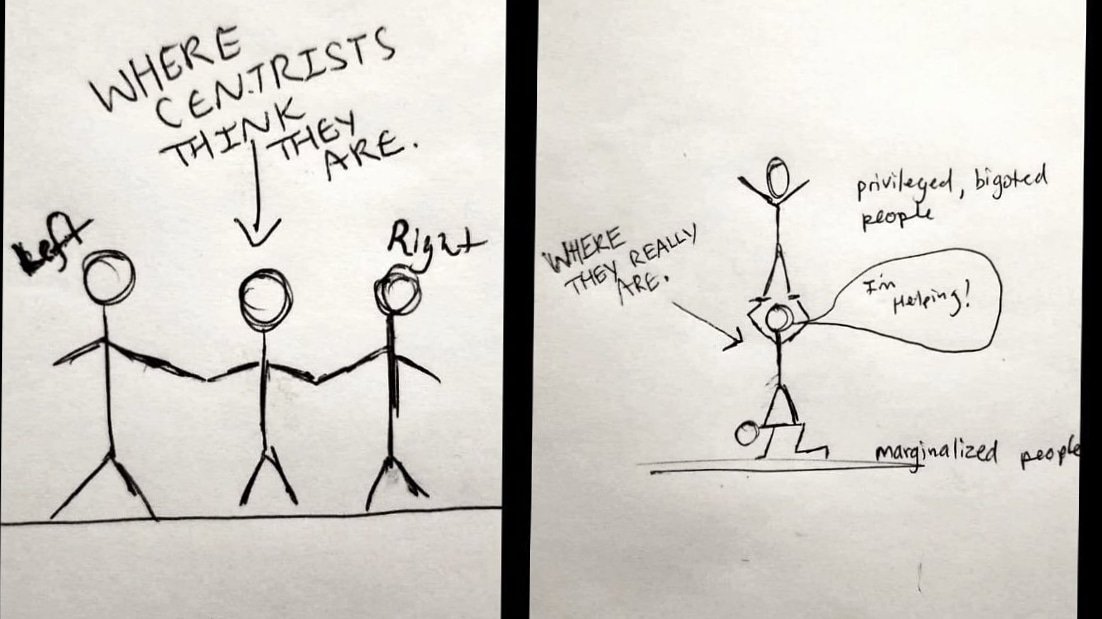 WHERE
CENTRISTS
THINK THEY
ARE.
Left
Right
privileged, bigoted
people
WHERE
THEY REALLY
ARE.
I'm
Helping!
marginalized people